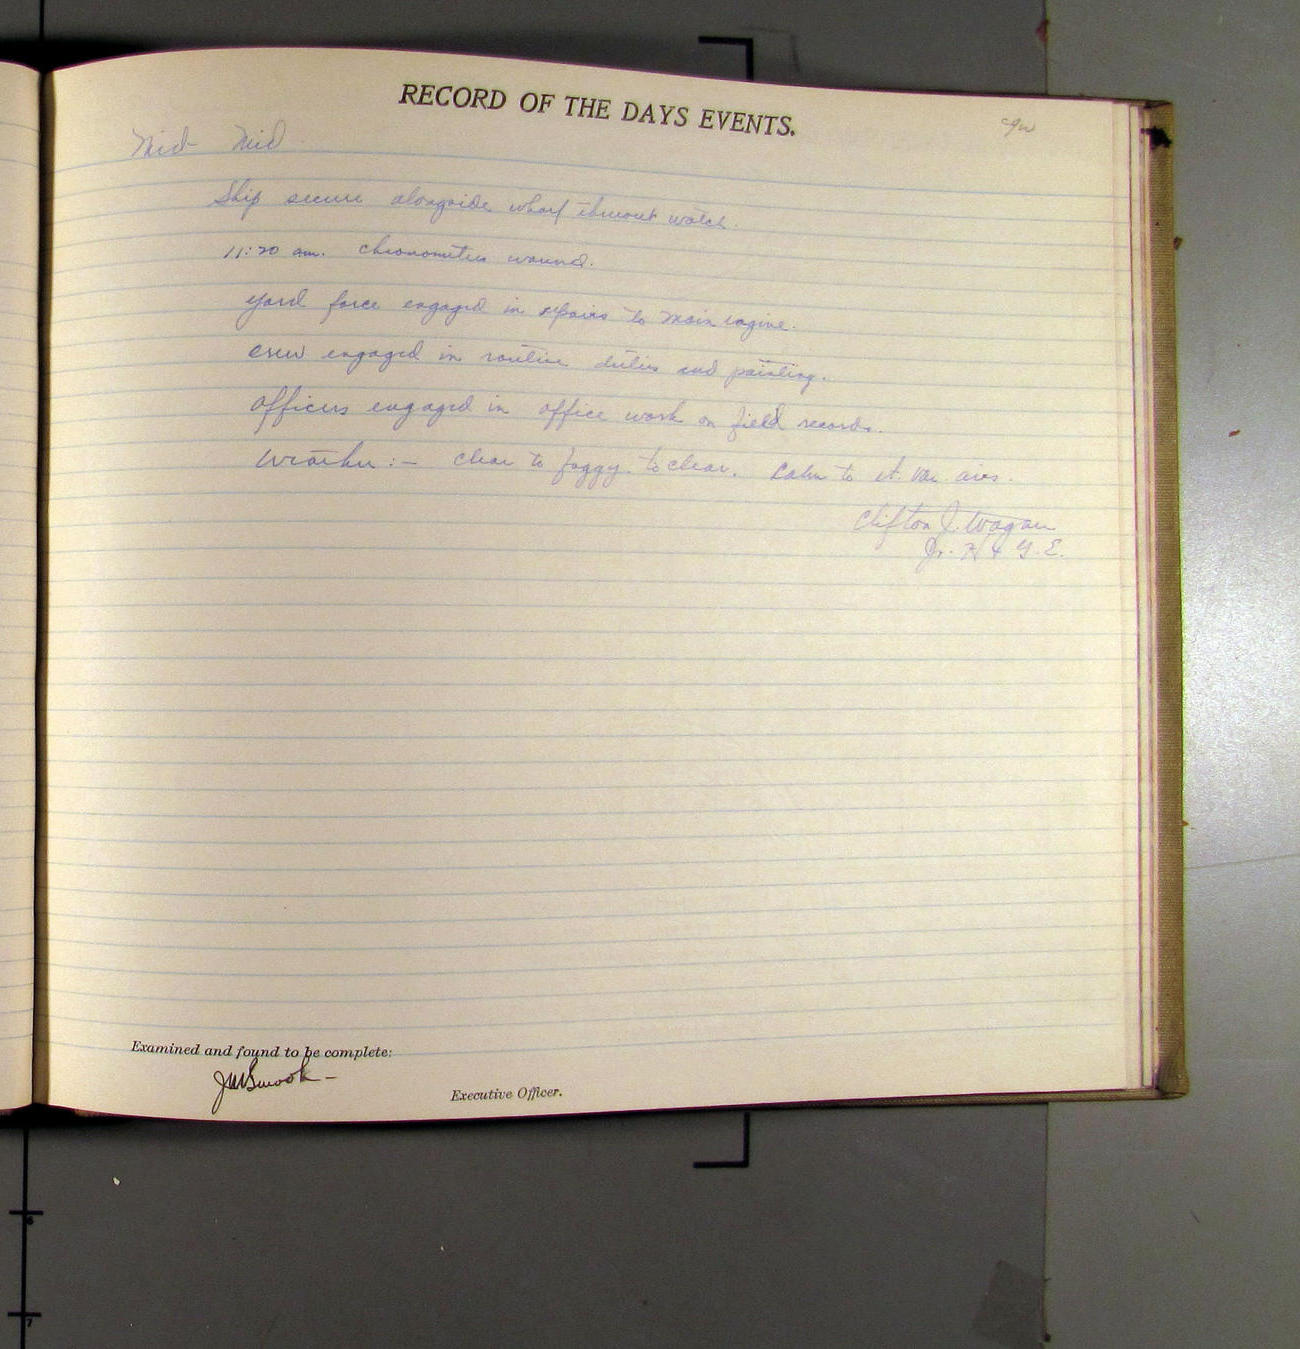 RECORD OF THE DAYS EVENTS.
Mid - Mid
Ship secure alongside wharf thruout watch.
11:20 am. Chronometers wound.
Yard force engaged in repairs to main engine.
Crew engaged in routine duties and painting.
Officers engaged in office work on field records.
Weather:- Clear to foggy to clear. Calm to lt. var. airs.
Clifton J. Wagau
Jr. H & G. E.
Examined and found to be complete:
Executive Officer.